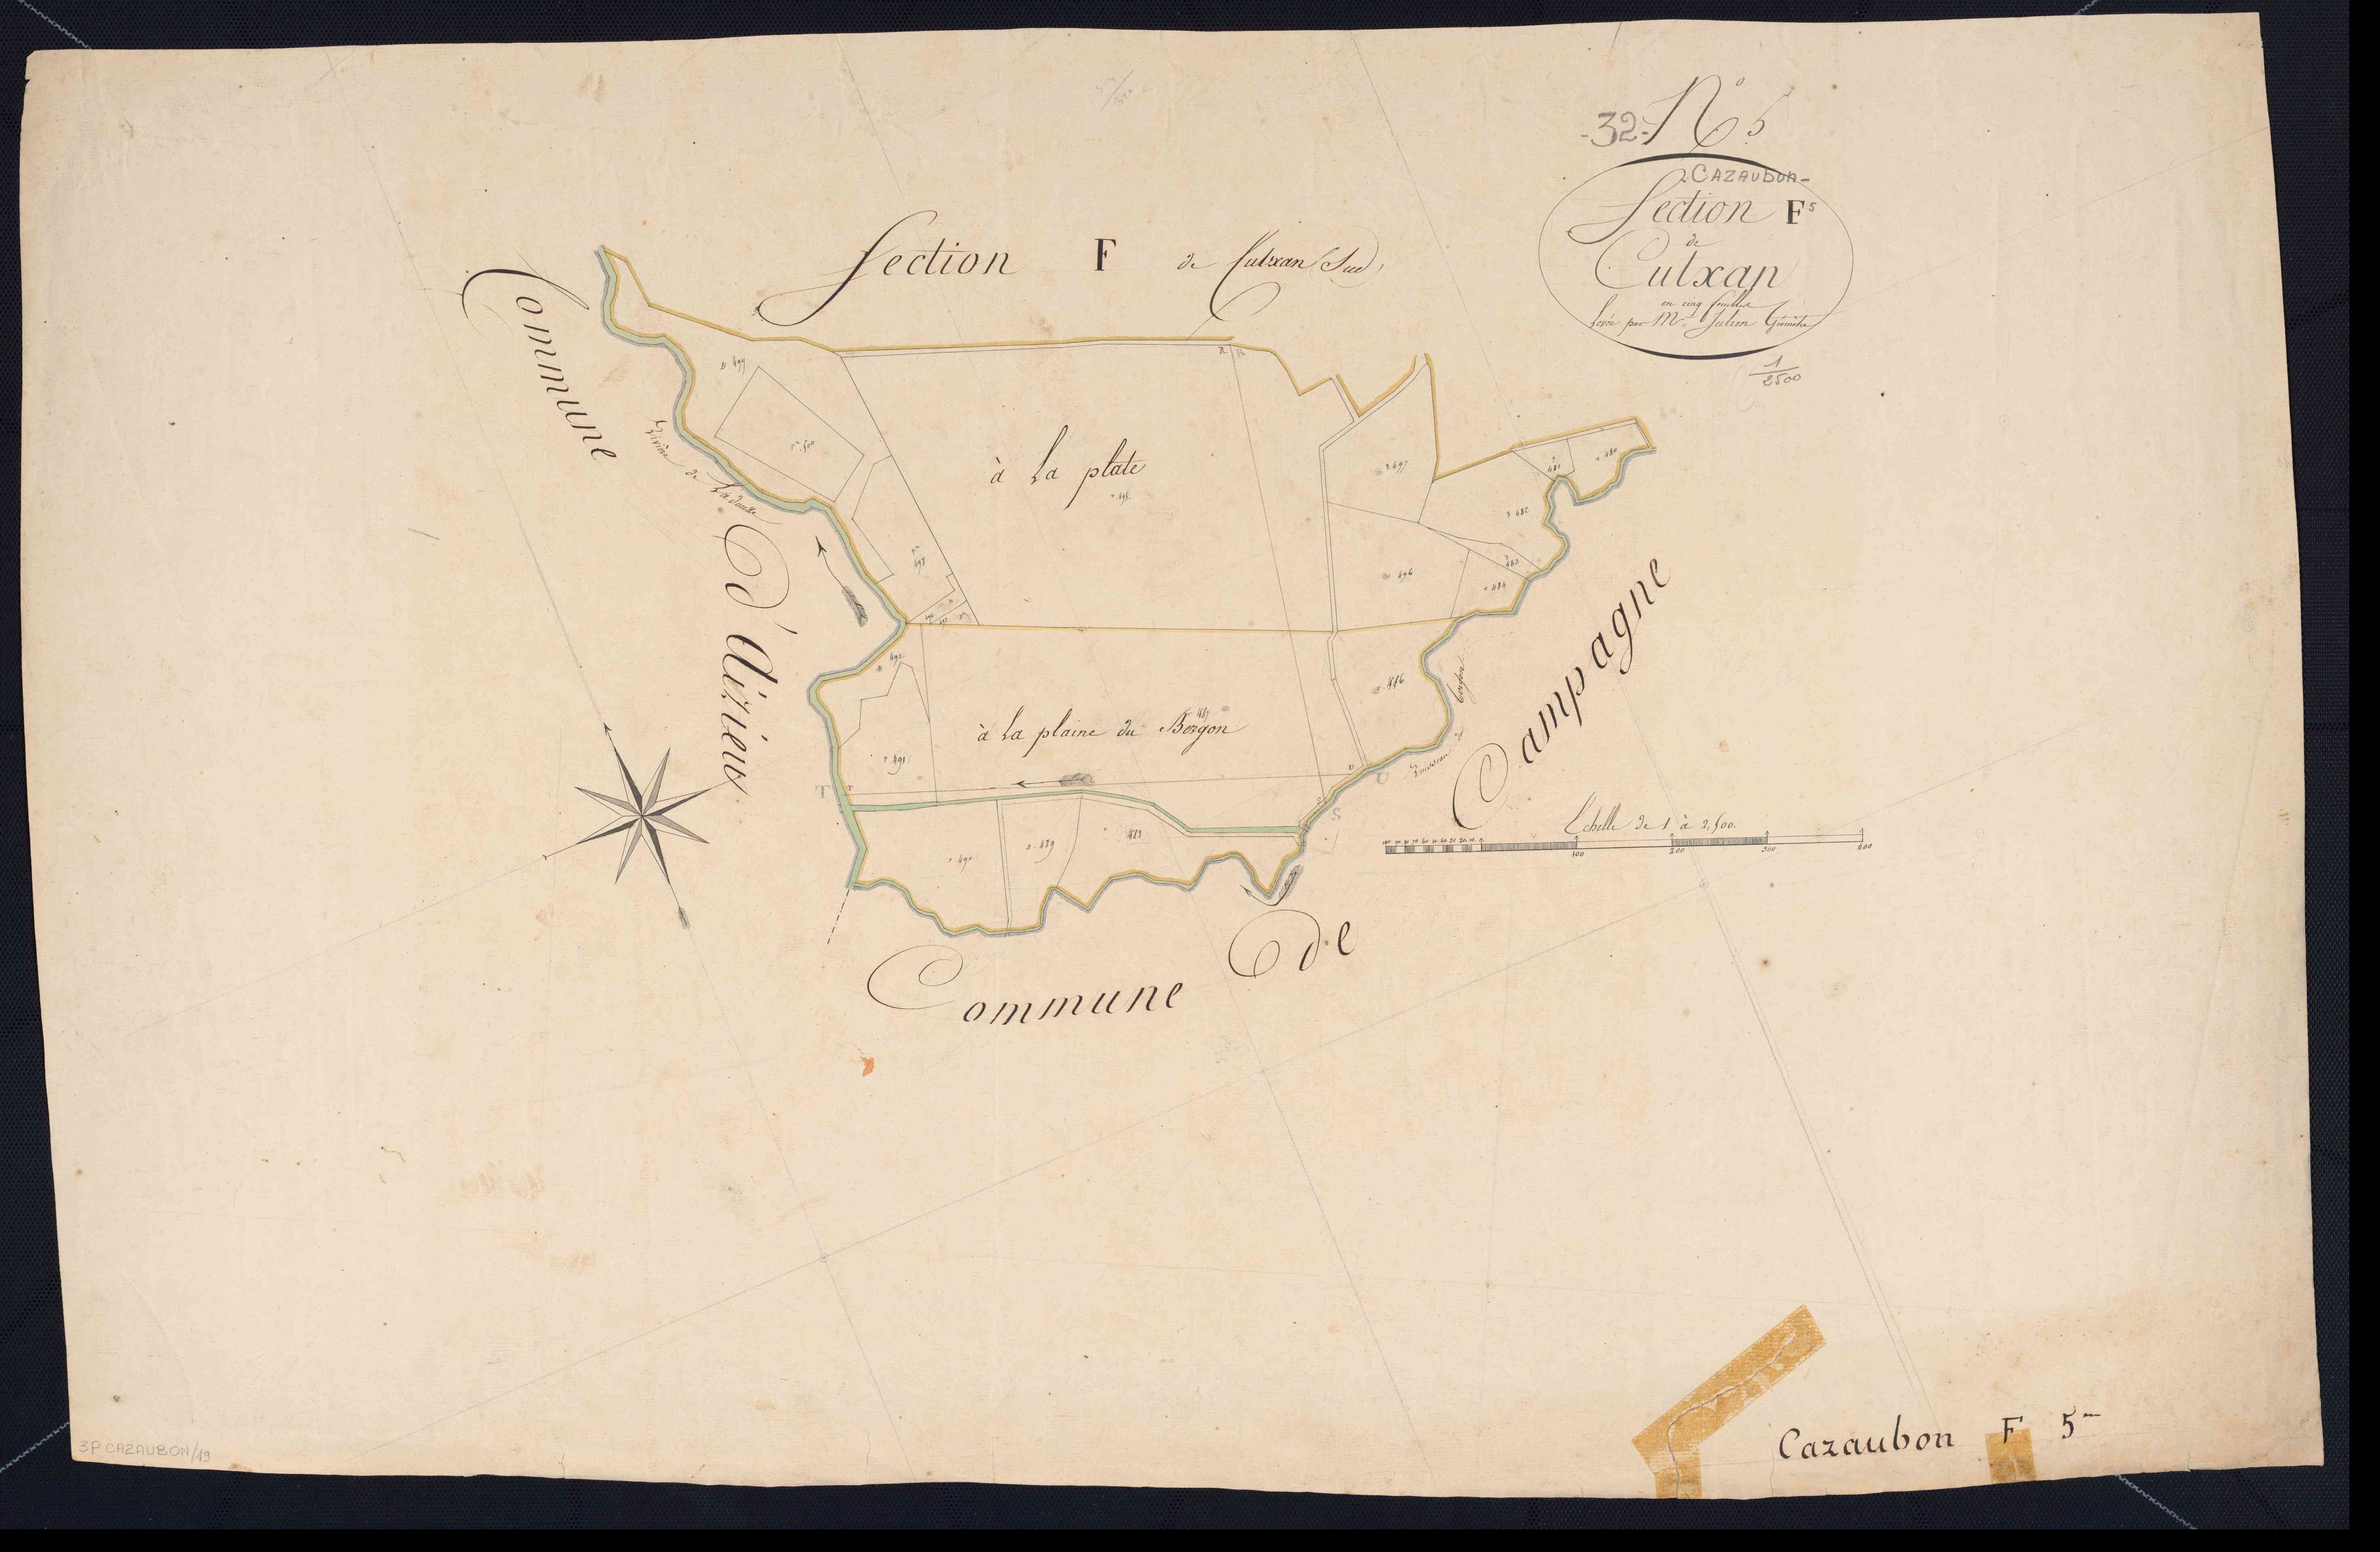 -32- N° 5
- CAZAUBON -
Section F⁵
de
Cutxan
en cinq feuilles
Levée par Mr. Julien Géomètre
1/2500
Section F de Cutxan (Sud)
Commune
D'Aizieu
Rivière de Ladouze
à La plate
495
499
500
497
498
496
480
481
482
483
484
486
487
492
491
490
489
488
à La plaine du Bergon
R
R
T
T
U
U
S
S
Ruisseau de
Commune De
Campagne
Echelle de 1 à 2,500.
100 200 300 400
3P CAZAUBON/19
Cazaubon F 5